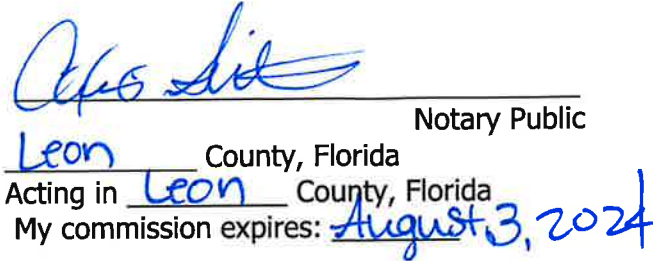 Notary Public
Leon County, Florida
Acting in Leon County, Florida
My commission expires: August 3, 2024